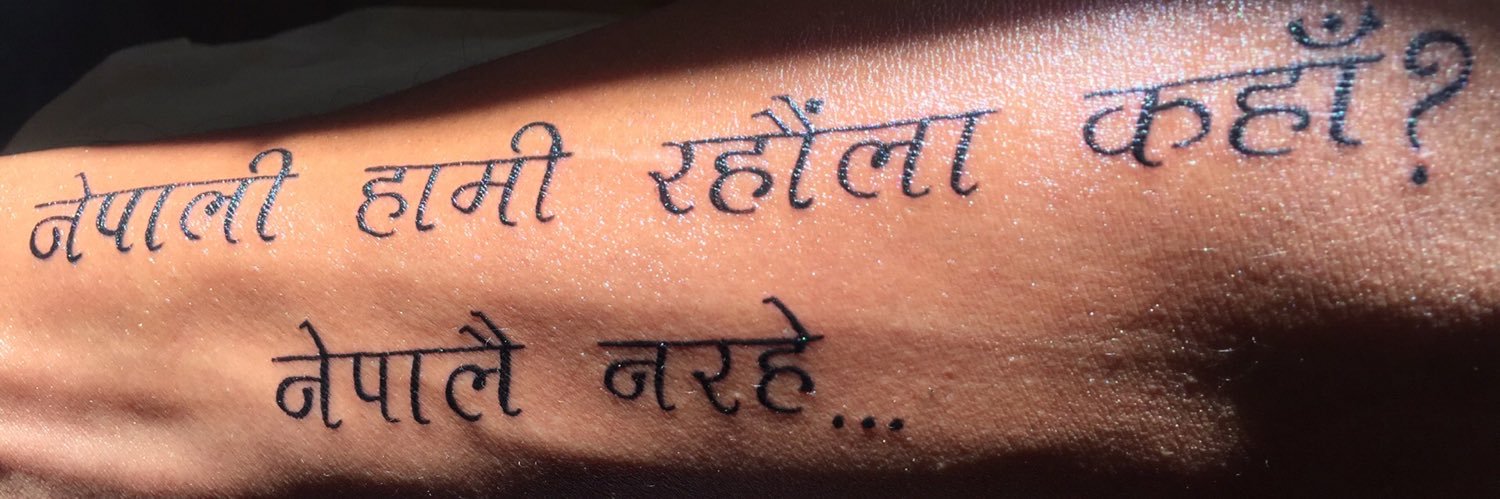 नेपाली हामी रहौंला कहाँ?
नेपालै नरहे...